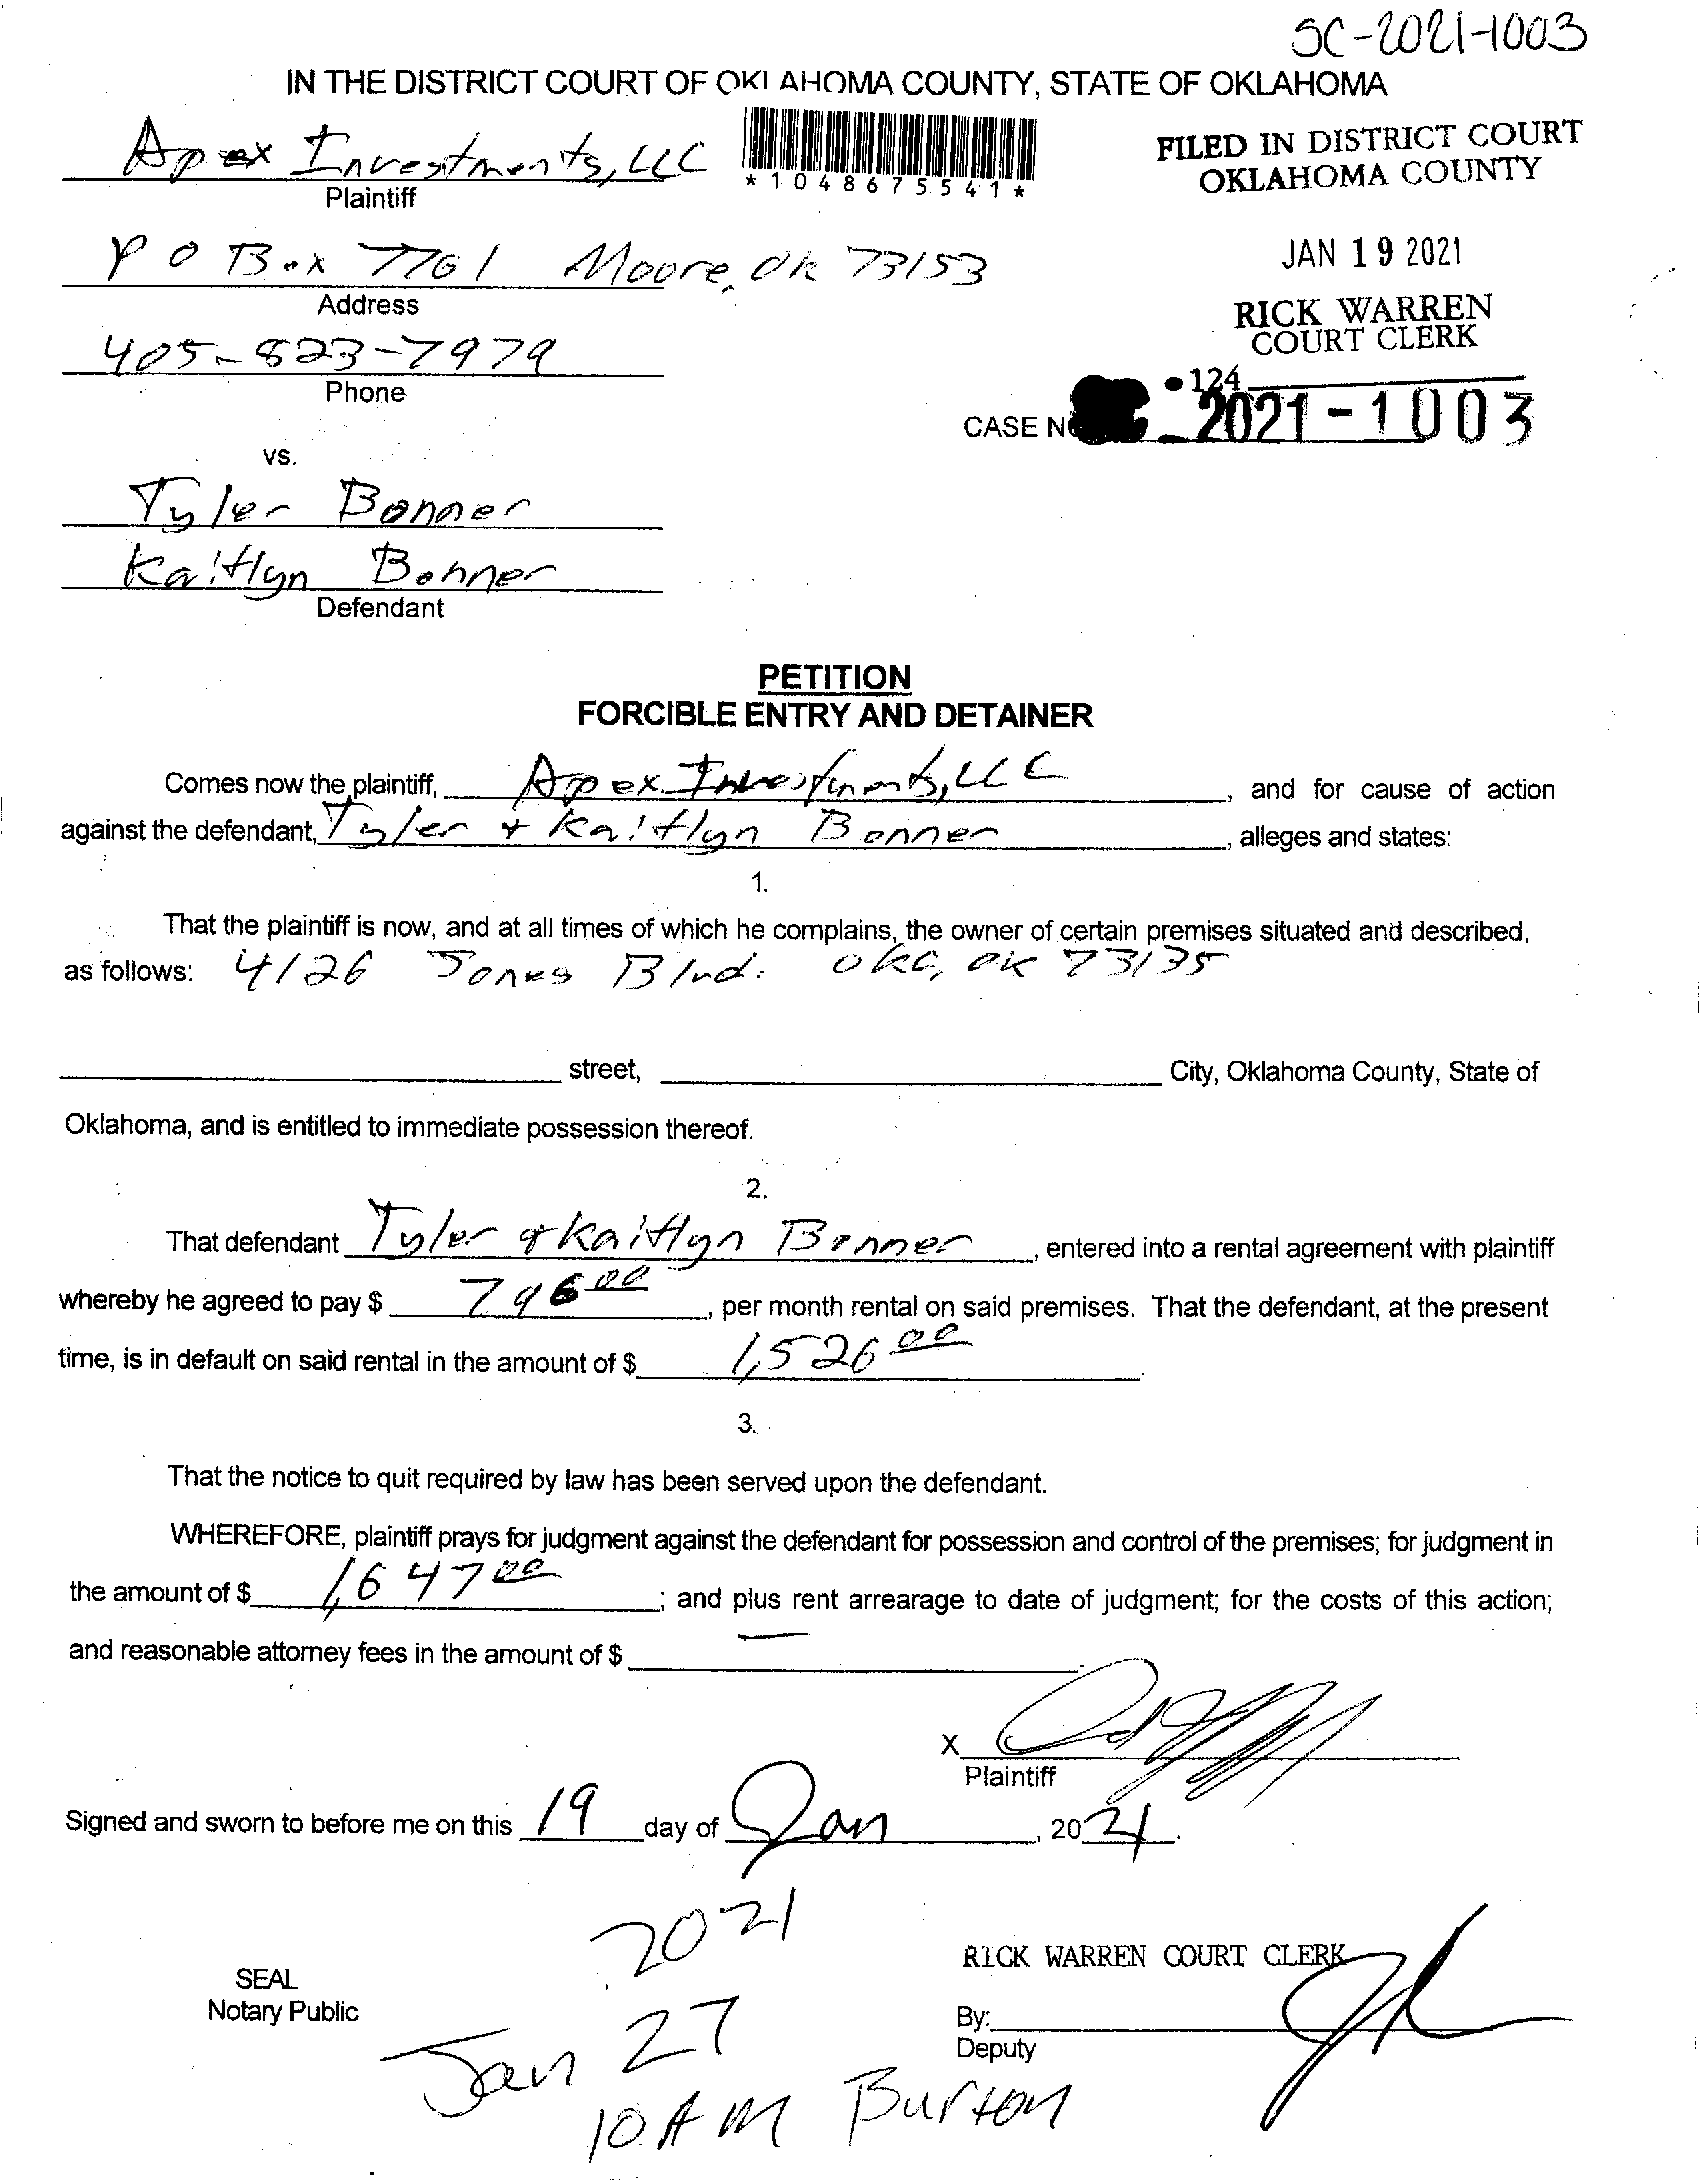 SC-2021-1003
IN THE DISTRICT COURT OF OKLAHOMA COUNTY, STATE OF OKLAHOMA
Apex Investments, LLC
Plaintiff
*1048675541*
FILED IN DISTRICT COURT
OKLAHOMA COUNTY
JAN 19 2021
RICK WARREN
COURT CLERK
P O Box 7761 Moore, Ok 73153
Address
405-823-7979
Phone
124
CASE N 2021-1003
vs.
Tyler Bonner
Kaitlyn Bonner
Defendant
PETITION
FORCIBLE ENTRY AND DETAINER
Comes now the plaintiff, Apex Investments, LLC, and for cause of action
against the defendant, Tyler + Kaitlyn Bonner, alleges and states:
1.
That the plaintiff is now, and at all times of which he complains, the owner of certain premises situated and described,
as follows: 4126 Jones Blvd. OKC, OK 73135
street, City, Oklahoma County, State of
Oklahoma, and is entitled to immediate possession thereof.
2.
That defendant Tyler + Kaitlyn Bonner, entered into a rental agreement with plaintiff
whereby he agreed to pay $ 796 00, per month rental on said premises. That the defendant, at the present
time, is in default on said rental in the amount of $ 1,526 00.
3.
That the notice to quit required by law has been served upon the defendant.
WHEREFORE, plaintiff prays for judgment against the defendant for possession and control of the premises; for judgment in
the amount of $ 1,647 00; and plus rent arrearage to date of judgment; for the costs of this action;
and reasonable attorney fees in the amount of $ —.
X
Plaintiff
Signed and sworn to before me on this 19 day of Jan, 2021.
2021
SEAL
Notary Public
RICK WARREN COURT CLERK
By:
Deputy
Jan 27
10 AM Burton